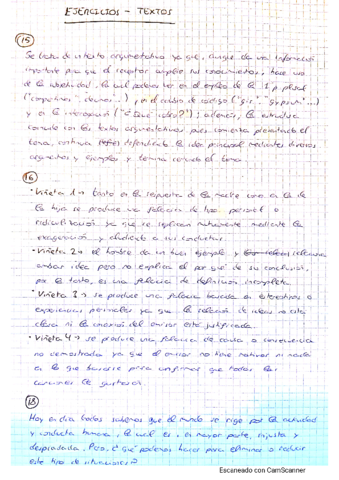 EJERCICIOS - TEXTOS
15
Se trata de un texto argumentativo ya que, aunque da una información
importante para que el receptor amplíe sus conocimientos, hace uso
de la subjetividad, la cual podemos ver en el empleo de la 1ª p. plural
y en la interrogación ("¿Qué
coincide con los textos argumentativos pues comienza planteando el
tema, continúa defendiendo la idea principal mediante diversos
argumentos y ejemplos y termina cerrando el tema.
16
• Viñeta 1 → tanto en la respuesta de la madre como en la de
la hija se produce una falacia de tipo personal o
ridiculización ya que se replican mutuamente mediante la
exageración y aludiendo a sus conductas.
• Viñeta 2 → el hombre da un buen ejemplo y
ambas ideas pero no explica el por qué de su conclusión,
por lo tanto, es una falacia de definición incompleta.
• Viñeta 3 → se produce una falacia basada en estereotipos o
experiencias personales ya que la relación de ideas no está
clara ni la conexión del emisor está justificada.
• Viñeta 4 → se produce una falacia de causa o consecuencia
no demostrada ya que el emisor no tiene motivos ni nada
en lo que basarse para confirmar que todos los
le gustaron.
18
Hoy en día todos sabemos que el mundo se rige por la actividad
y conducta humana, la cual es, en mayor parte, injusta y
despiadada. Pero, ¿qué podemos hacer para eliminar o reducir
este tipo de situaciones?
Escaneado con CamScanner